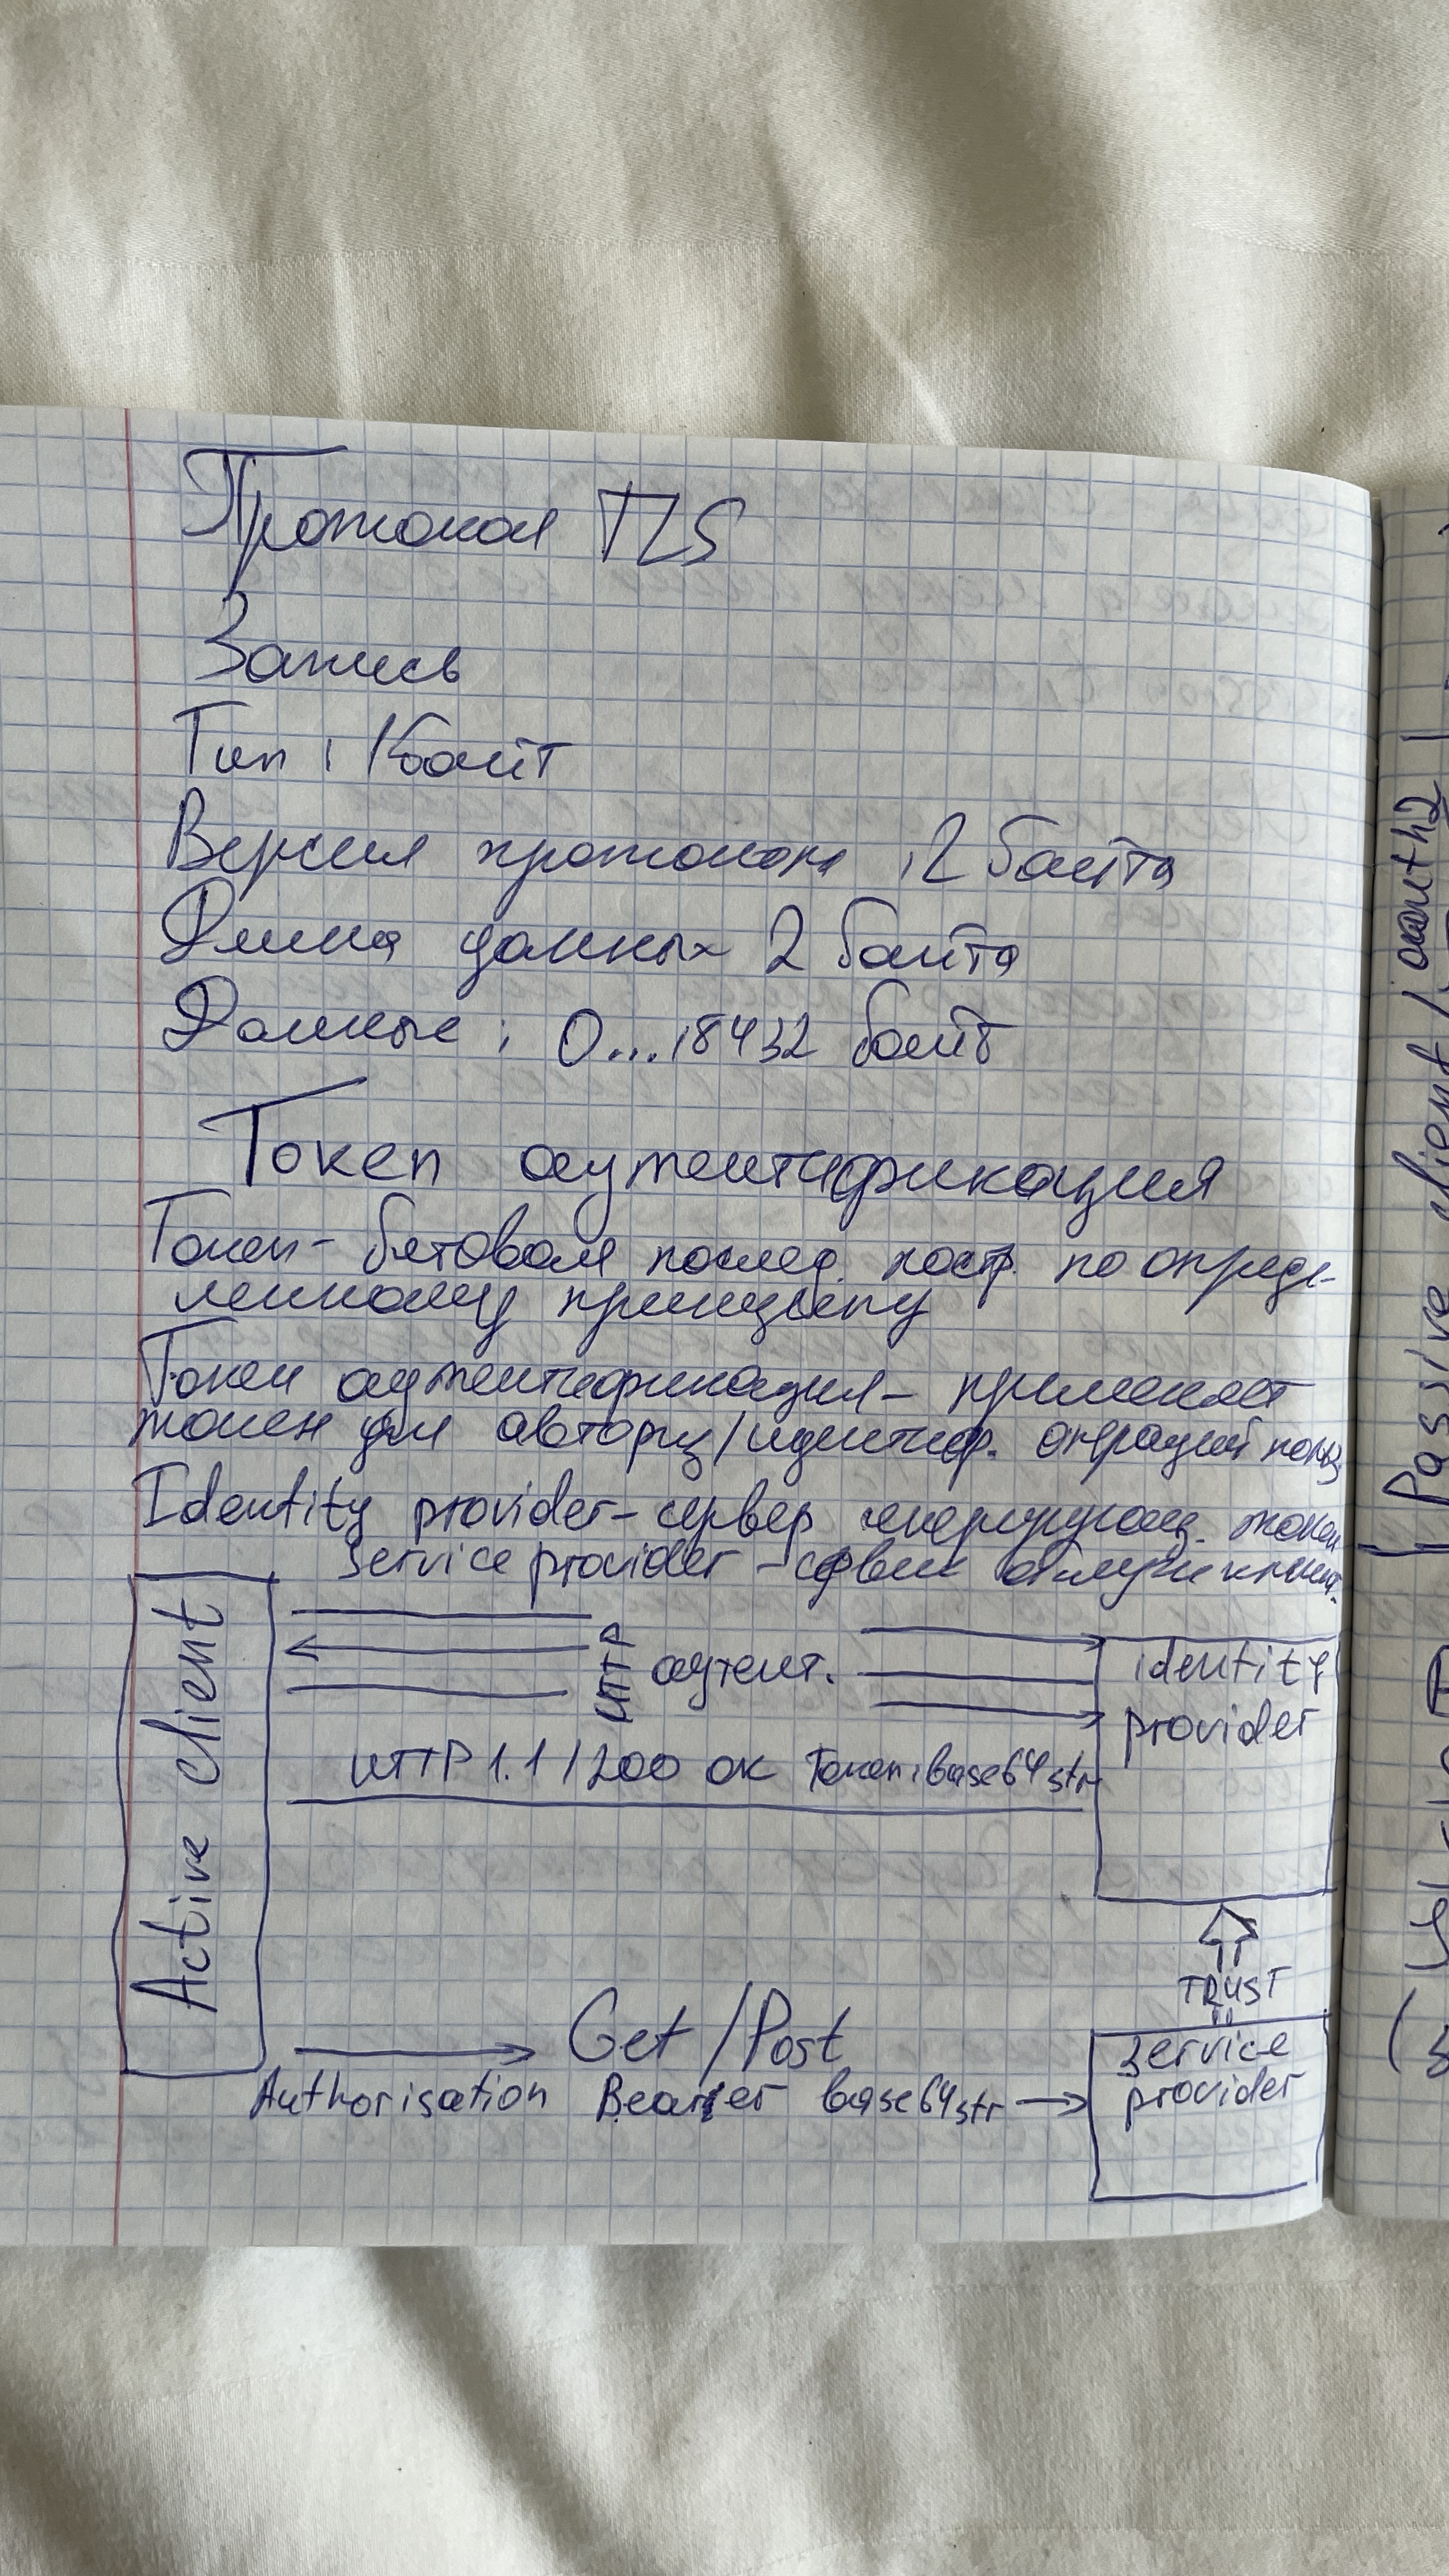 Протокол TLS
Запись
Тип : 1 байт
Версия протокола : 2 байта
Длина данных 2 байта
Данные : 0...18432 байт
Токен аутентификация
Токен - битовая послед. постр. по опреде-
ленному принципу
Токен аутентификация - применяет
токен для авториз/идентиф. операций польз
Identity provider - сервер генерирующ. токен
Service provider - сервис клиент.
Active client
HTTP
аутент.
identity
provider
HTTP 1.1 / 200 OK Токен: base64str
TRUST
Get / Post
Service
provider
Authorisation Bearer base64str
Passive client / oauth2